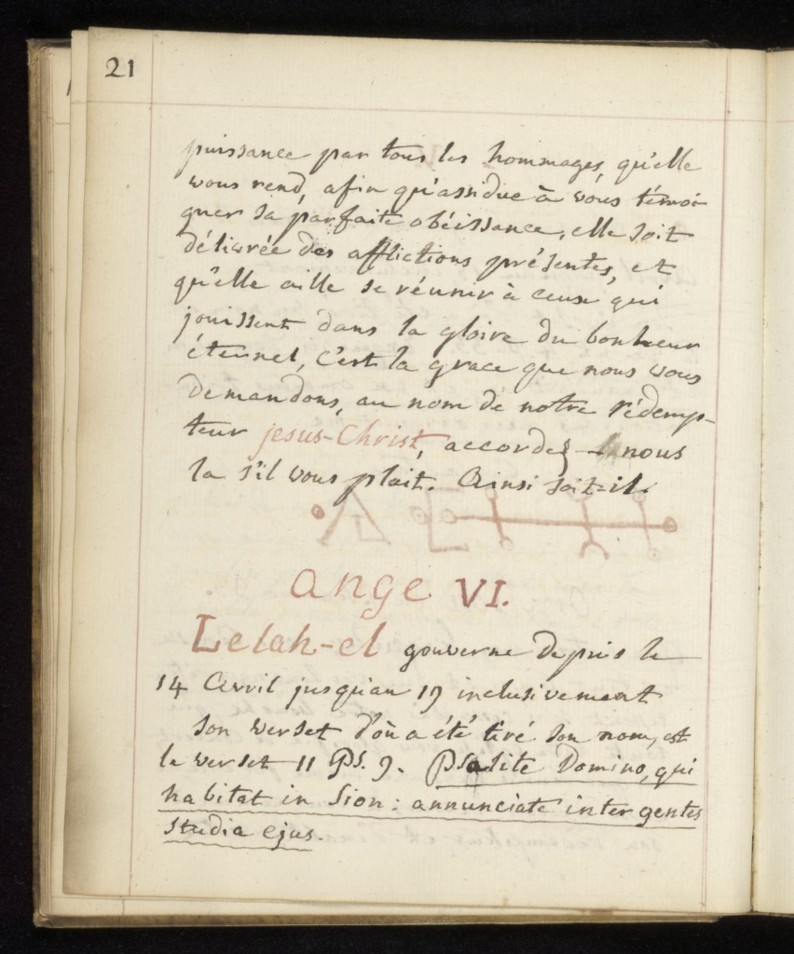 21
puissance par tous les hommages, qu'elle
vous rend, afin qu'assidue à vous témoi
gner sa parfaite obéissance, elle soit
délivrée des afflictions présentes, et
qu'elle aille se réunir à ceux qui
jouissent dans la gloire du bonheur
éternel, c'est la grace que nous vous
demandons, au nom de notre rédemp-
teur jesus-Christ, accordez nous
la s'il vous plait. Ainsi soit=il.
ange VI.
Lelah-el gouverne depuis le
14 Avril jusqu'au 19 inclusivement
son verset d'où a été tiré son nom, est
le verset 11 Ps. 9. Psalite Domino, qui
habitat in Sion: annunciate inter gentes
studia ejus.